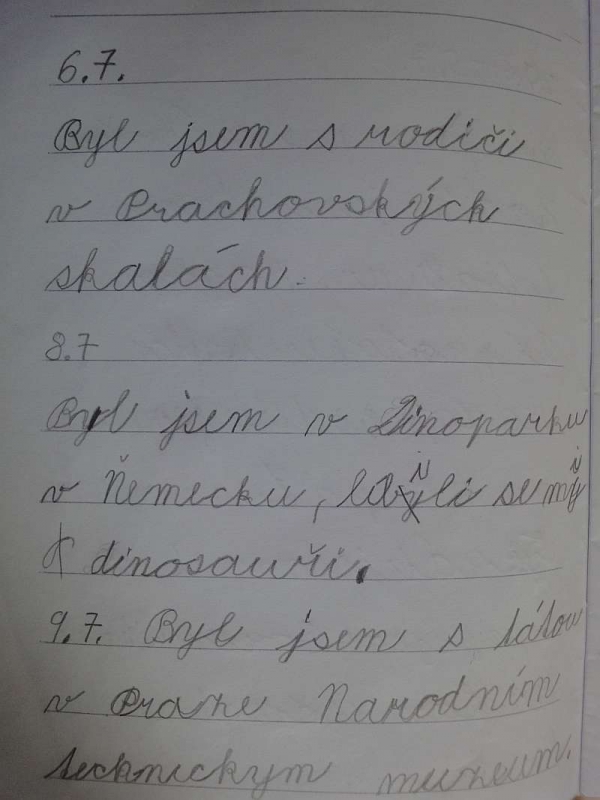 6.7.
Byl jsem s rodiči
v Prachovských
skalách.
8.7
Byl jsem v Dinoparku
v Ňemecku, se mi
dinosauři.
9.7. Byl jsem s tátou
v Praze Narodním
technickym muzeum.